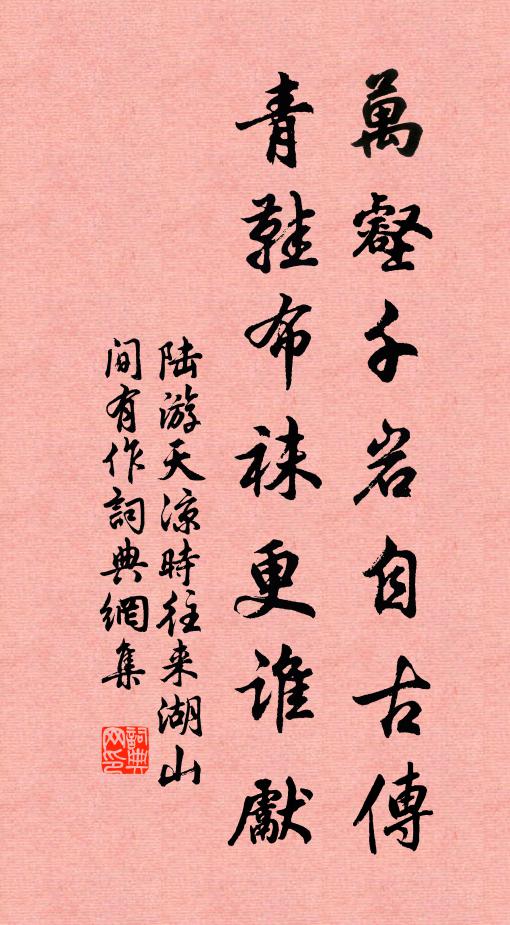 萬壑千岩自古傳
青鞋布袜更誰獻
陆游天涼時往来湖山
间有作詞典網集
詞典网印